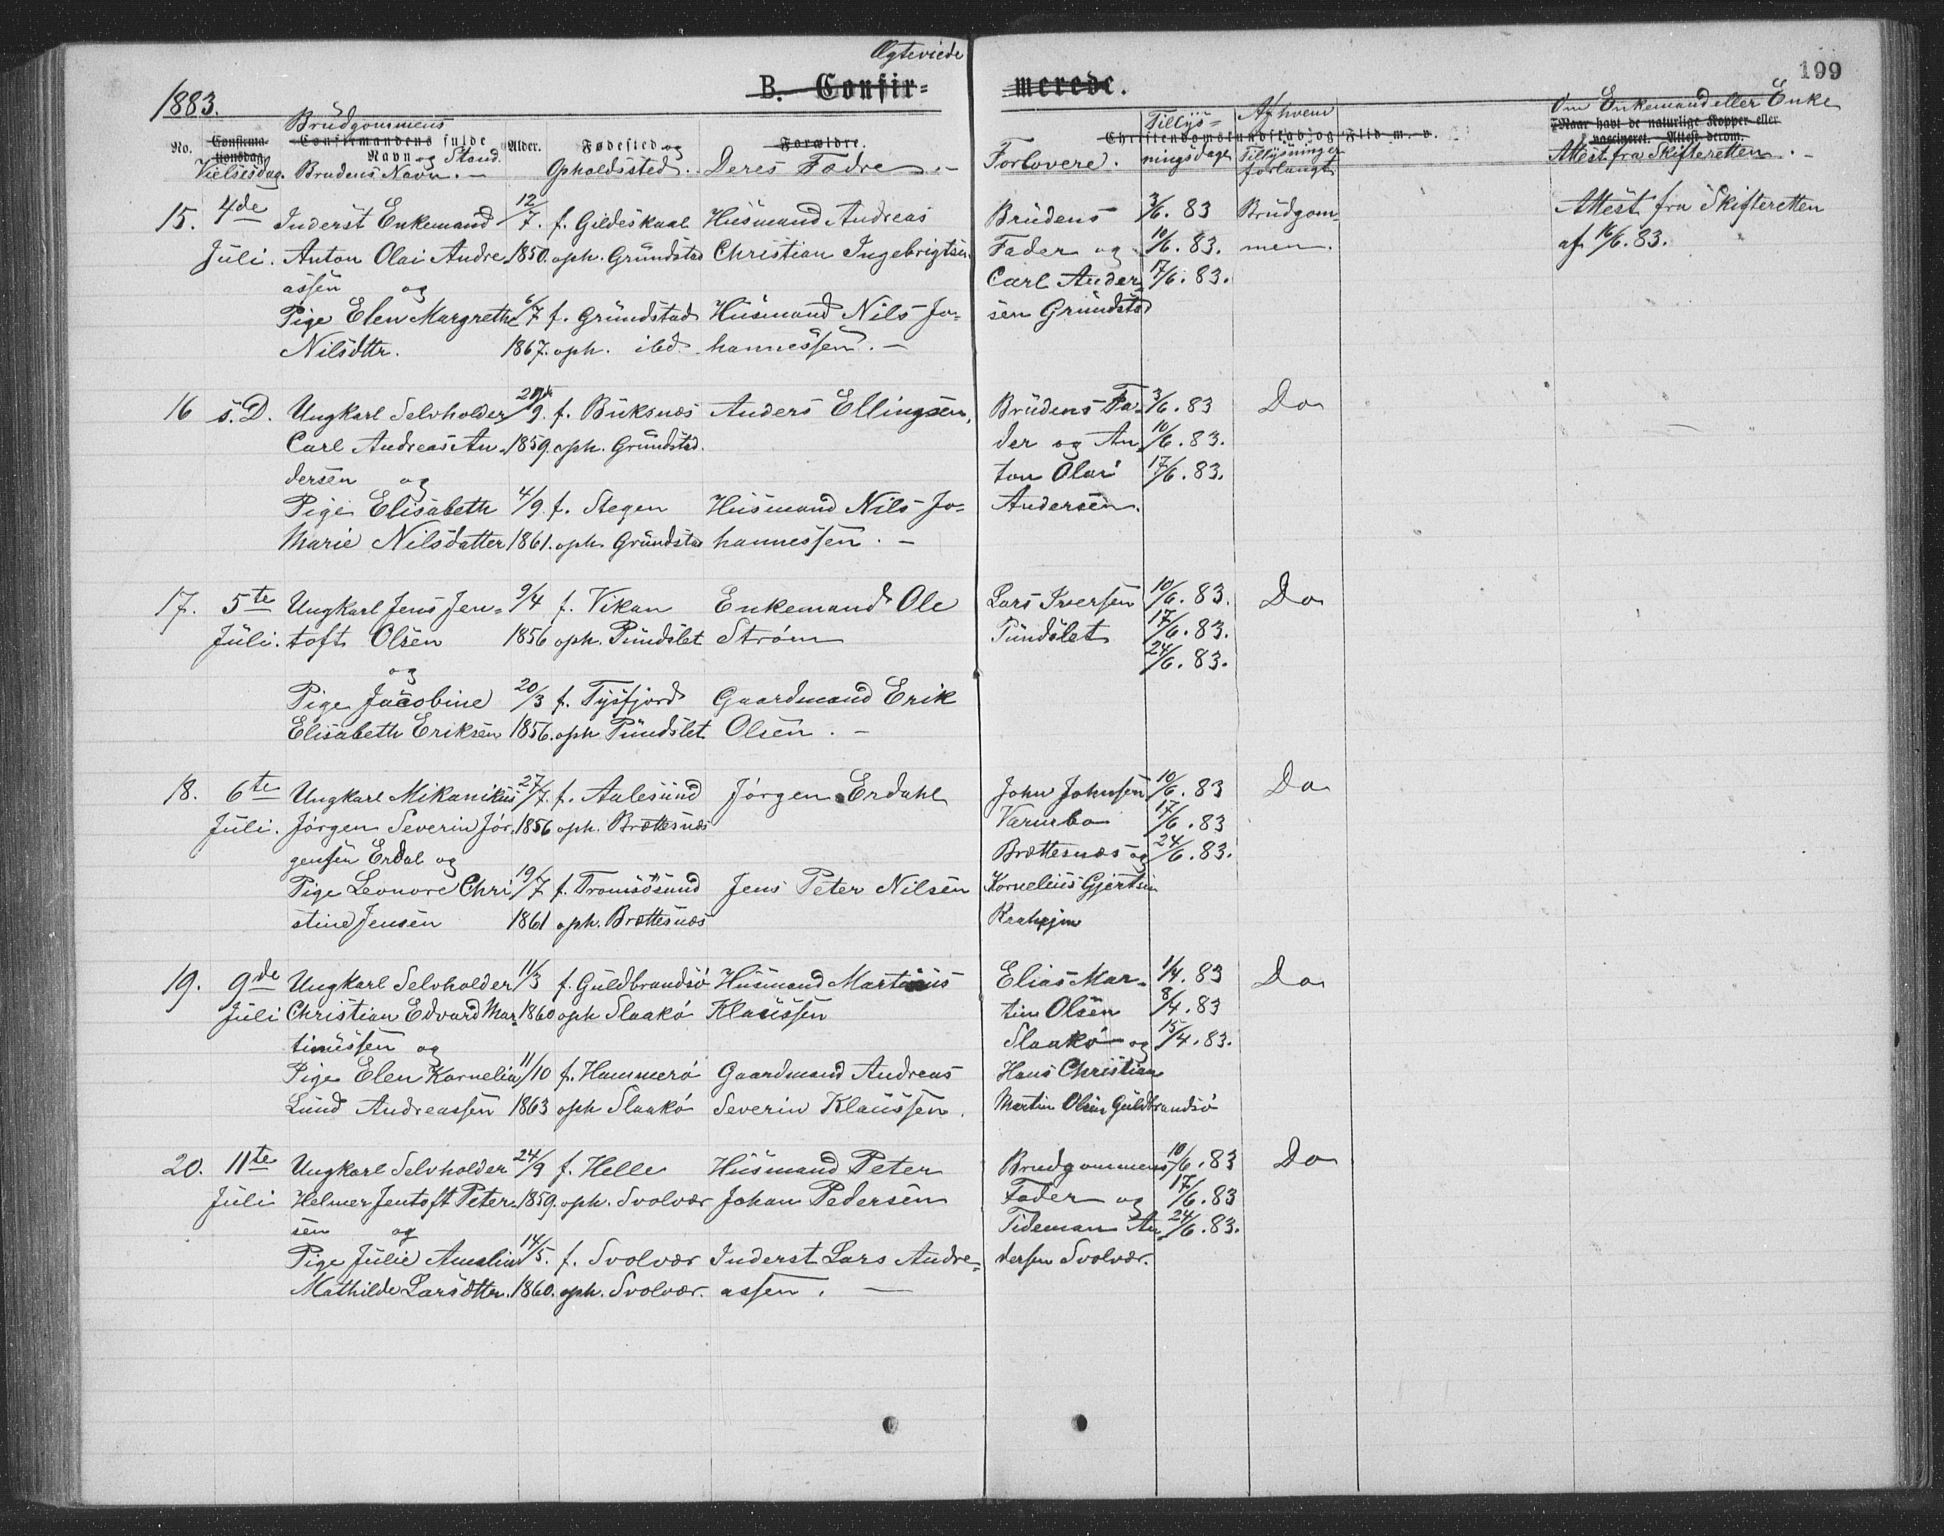 Ægteviede
199
1883.
B. Confir= merede.
Brudgommens
Tillys= Af hvem Om Enkemand eller Enke
No. Confirma-tionsdag. Confirmandens fulde Navn og Stand. Alder. Fødested og Forældre. Christendomskundskab og Flid m. v. Naar havt de naturlige Kopper eller vaccineret. Attest derom.
Vielsesdag. Brudens Navn. – Opholdssted. Deres Fædre. – Forlovere. ningsdage Tillysninger forlangt Attest fra Skifteretten. –
15. 4de Inderst Enkemand 12/7. f. Gildeskaal Husmand Andreas Brudens 3/6. 83 Brudgom Attest fra Skifteretten
Juli. Anton Olai Andre 1850. oph. Grundstad Christian Ingebrigtsen Fader og 10/6. 83. men. af 16/6. 83.
assen og Carl Ander 17/6. 83.
Pige Elen Margrethe 6/7 f. Grundstad Husmand Nils Jo= sen Grundstad
Nilsdttr. 1867. oph. ibd. hannessen. –
16 s. D. Ungkarl Selvholder 29/9. f. Buksnæs Anders Ellingsen, Brudens Fa= 3/6. 83 Do
Carl Andreas An 1859. oph. Grundstad. der og An 10/6. 83.
dersen og ton Olai 17/6. 83.
Pige Elisabeth 4/9. f. Stegen Husmand Nils Jo= Andersen.
Marie Nilsdatter 1861. oph. Grundstad hannessen. –
17. 5te Ungkarl Jens Jen= 9/4 f. Vikan Enkemand Ole Lars Iversen 10/6. 83. Do
Juli. toft Olsen 1856 oph. Pundslet Strøm Pundslet 17/6. 83.
og 24/6. 83.
Pige Jacobine 20/3 f. Tysfjord Gaardmand Erik
Elisabeth Eriksen 1856. oph Pundslet Olsen. –
18. 6te Ungkarl Mikanikus 27/7. f. Aalesund Jørgen Erdahl John Johnsen 10/6. 83 Do
Juli. Jørgen Severin Jør. 1856 oph. Brettesnæs 17/6. 83
gensen Erdal og Brettesnæs og 24/6. 83.
Pige Leonore Chri 19/7 f. Tromsøsund Jens Peter Nilsen Kornelius Gjertsen
stine Jensen 1861 oph. Brettesnæs
19. 9de Ungkarl Selvholder 11/3 f. Guldbrandsø Husmand Martinus Elias Mar= 1/4. 83 Do
Juli Christian Edvard Mar= 1860 oph Slaakø Klaussen tin Olsen 8/4. 83
tinussen og Slaakø og 15/4. 83.
Pige Elen Kornelia 11/10 f. Hammerø Gaardmand Andreas Hans Christian
Lund Andreassen 1863 oph Slaakø Severin Klaussen. Martin Olsen Guldbrandsø
20. 11te Ungkarl Selvholder 24/9 f. Helle Husmand Peter Brudgommens 10/6. 83 Do
Juli Helmer Jentoft Peter= 1859. oph. Svolvær Johan Pedersen Fader og 17/6. 83
sen og Tideman An= 24/6. 83.
Pige Julie Amalia 14/5. f. Svolvær Inderst Lars Andre= dersen Svolvær.
Mathilde Larsdttr. 1860. oph. Svolvær. assen. –